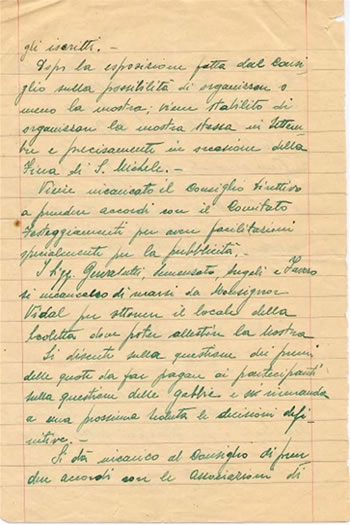 gli iscritti. -
Dopo la esposizione fatta dal Consi-
glio sulla possibilità di organizzare o
meno la mostra; viene stabilito di
organizzare la mostra stessa in Settem-
bre e precisamente in occasione della
Fiera di S. Michele. -
Viene incaricato il Consiglio Direttivo
a prendere accordi con il Comitato
Festeggiamenti per avere facilitazioni
specialmente per la pubblicità. -
I Sigg. Sumensato, Angeli e Favero
si incaricano di recarsi da Monsignor
Vidal per ottenere il locale della
dove poter allestire la mostra
Si discute sulla questione dei premi
delle quote da far pagare ai partecipanti
sulla questione delle gabbie e si rimanda
a una prossima seduta le decisioni defi-
nitive. -
Si dà incarico al Consiglio di pren-
dere accordi con le Associazioni di